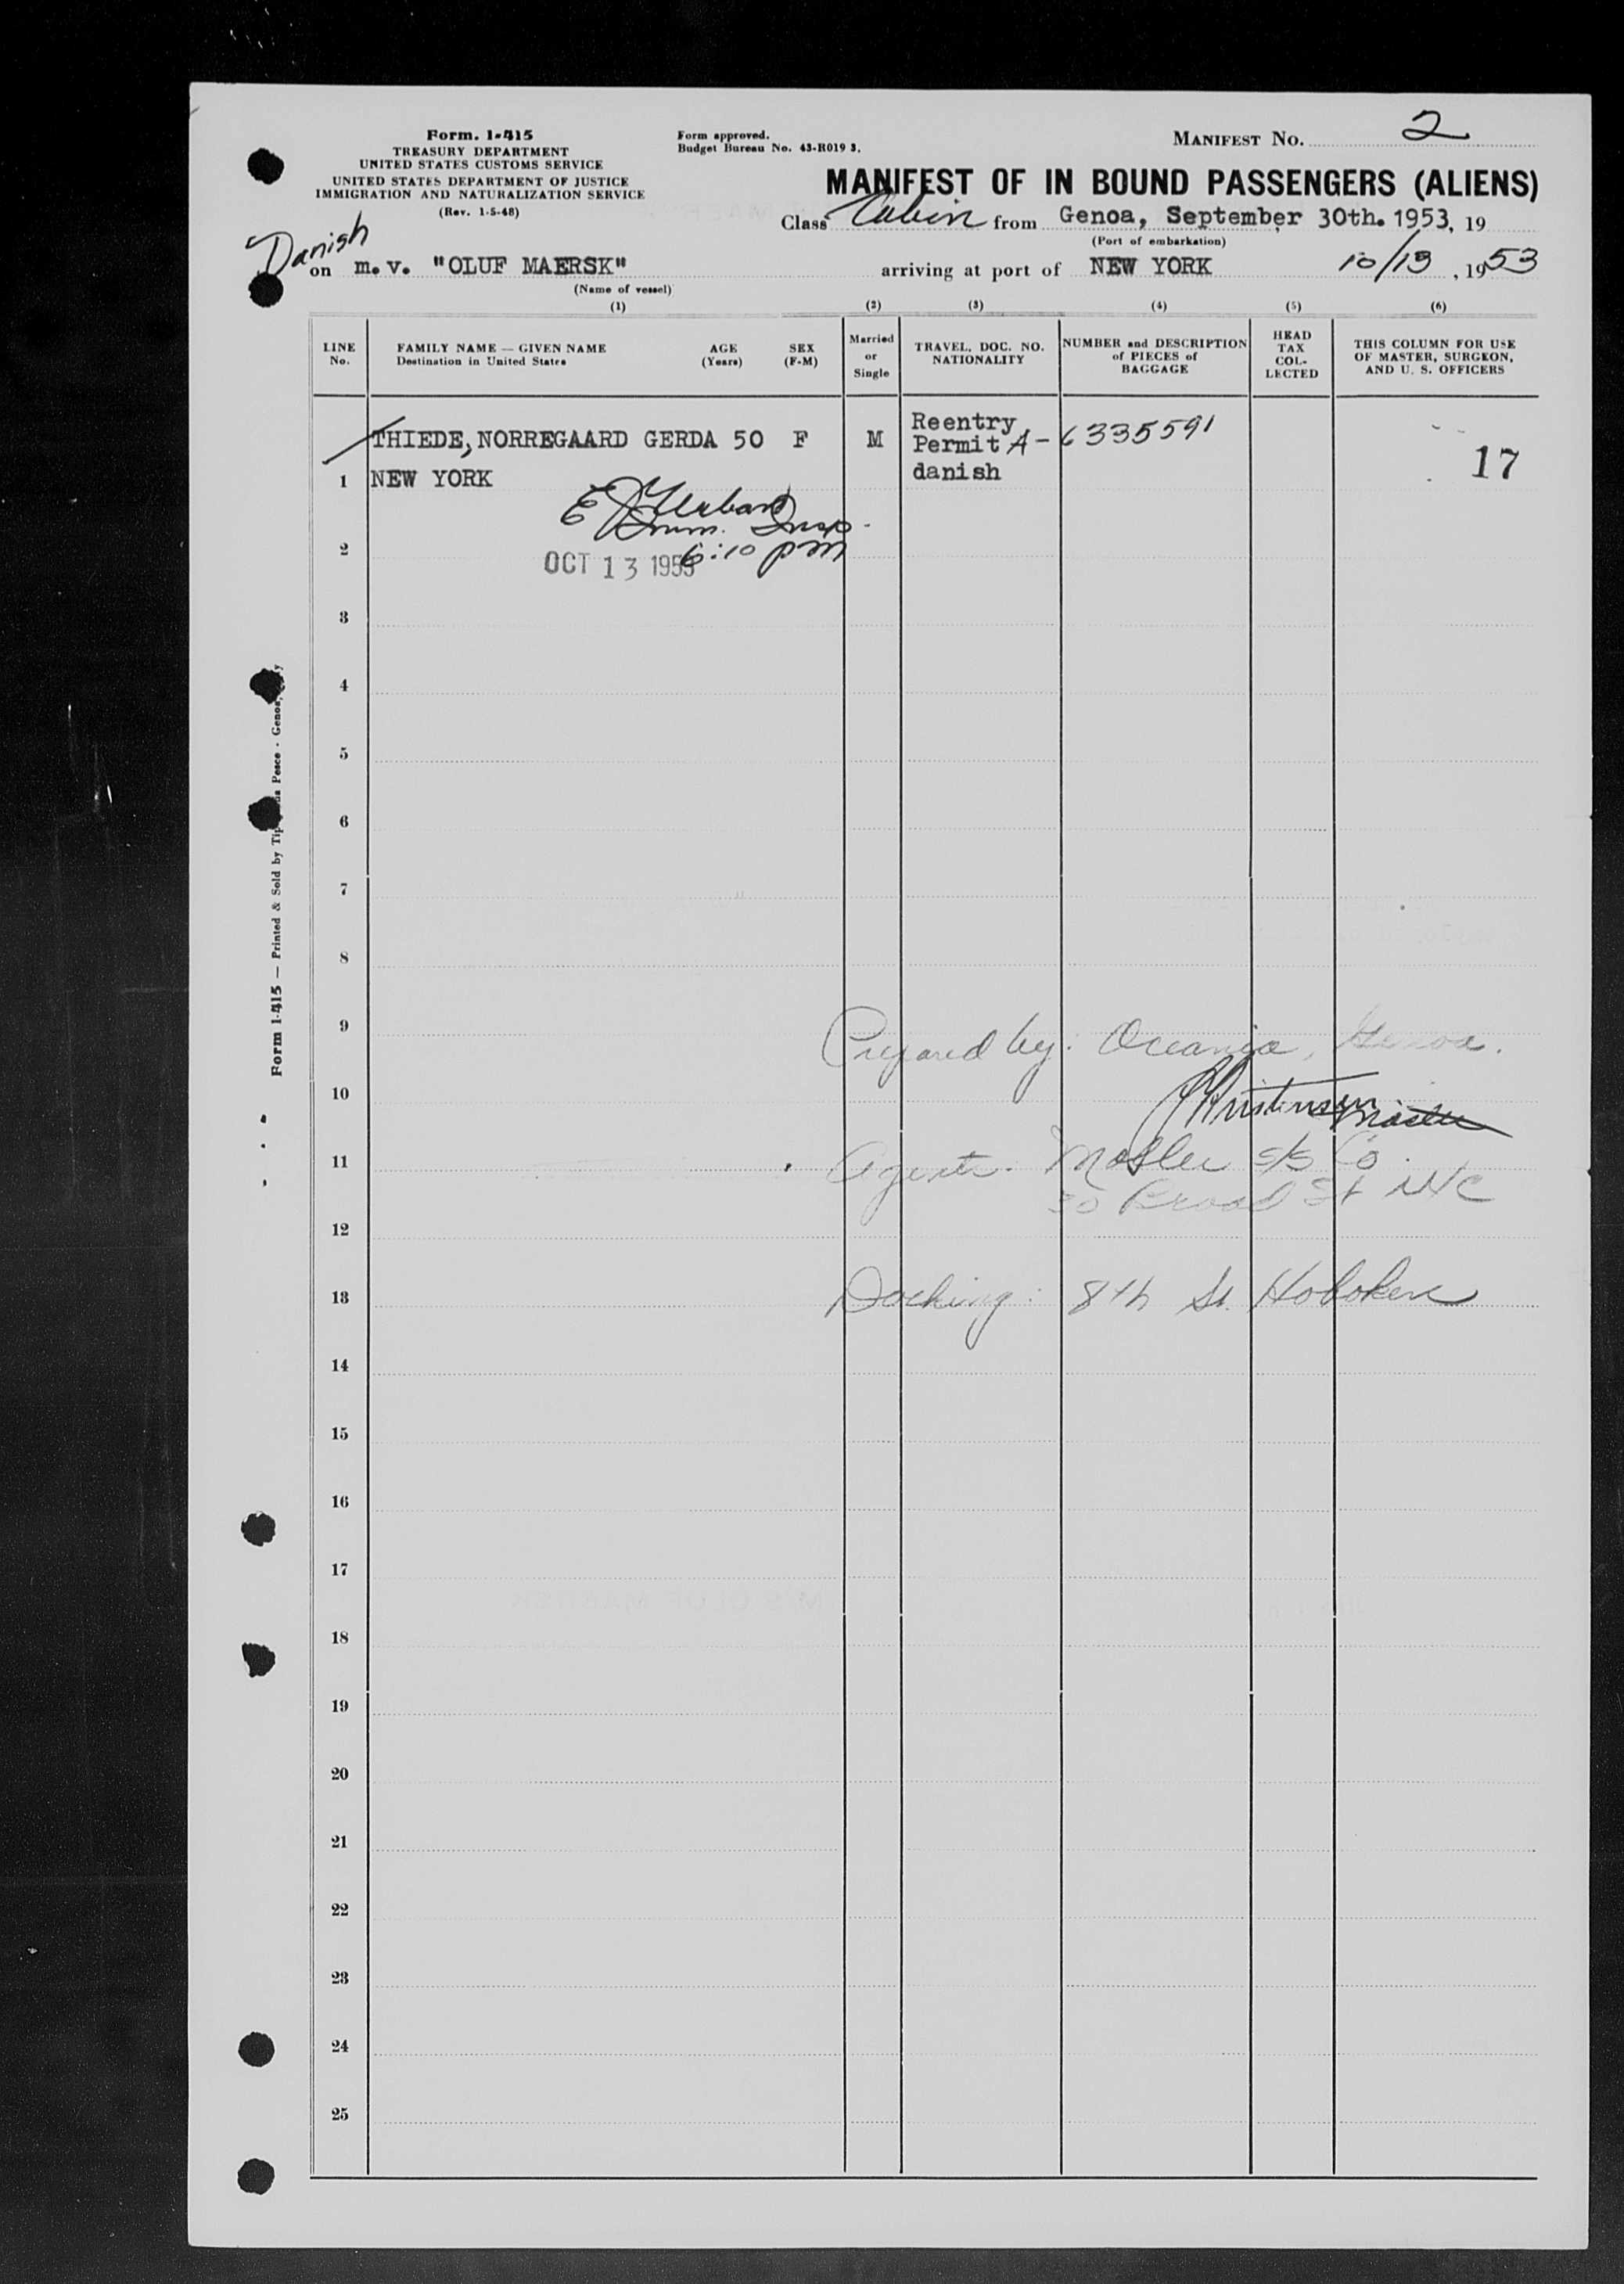 Form. 1-415
TREASURY DEPARTMENT
UNITED STATES CUSTOMS SERVICE
UNITED STATES DEPARTMENT OF JUSTICE
IMMIGRATION AND NATURALIZATION SERVICE
(Rev. 1-5-48)
Form approved.
Budget Bureau No. 43-R019 3.
MANIFEST No. 2
MANIFEST OF IN BOUND PASSENGERS (ALIENS)
Class Cabin from Genoa, September 30th. 1953, 19
(Port of embarkation)
Danish
on m.v. "OLUF MAERSK" arriving at port of NEW YORK 10/13, 1953
(Name of vessel)
(1) (2) (3) (4) (5) (6)
LINE No.
FAMILY NAME — GIVEN NAME
Destination in United States
AGE (Years)
SEX (F-M)
Married or Single
TRAVEL, DOC. NO. NATIONALITY
NUMBER and DESCRIPTION of PIECES of BAGGAGE
HEAD TAX COL- LECTED
THIS COLUMN FOR USE OF MASTER, SURGEON, AND U. S. OFFICERS
THIEDE, NORREGAARD GERDA 50 F M Reentry Permit A- 6335591
1 NEW YORK danish 17
Imm. Insp.
2 OCT 13 1953 6:10 pm
3
4
5
6
7
8
9 Prepared by: Oceania, Genoa.
10 Christensen Master
11 Agents. Moller S/S Co.
30 Broad St NYC
12
13 Docking: 8th St. Hoboken
14
15
16
17
18
19
20
21
22
23
24
25
Form 1-415 — Printed & Sold by Pesce - Genoa,